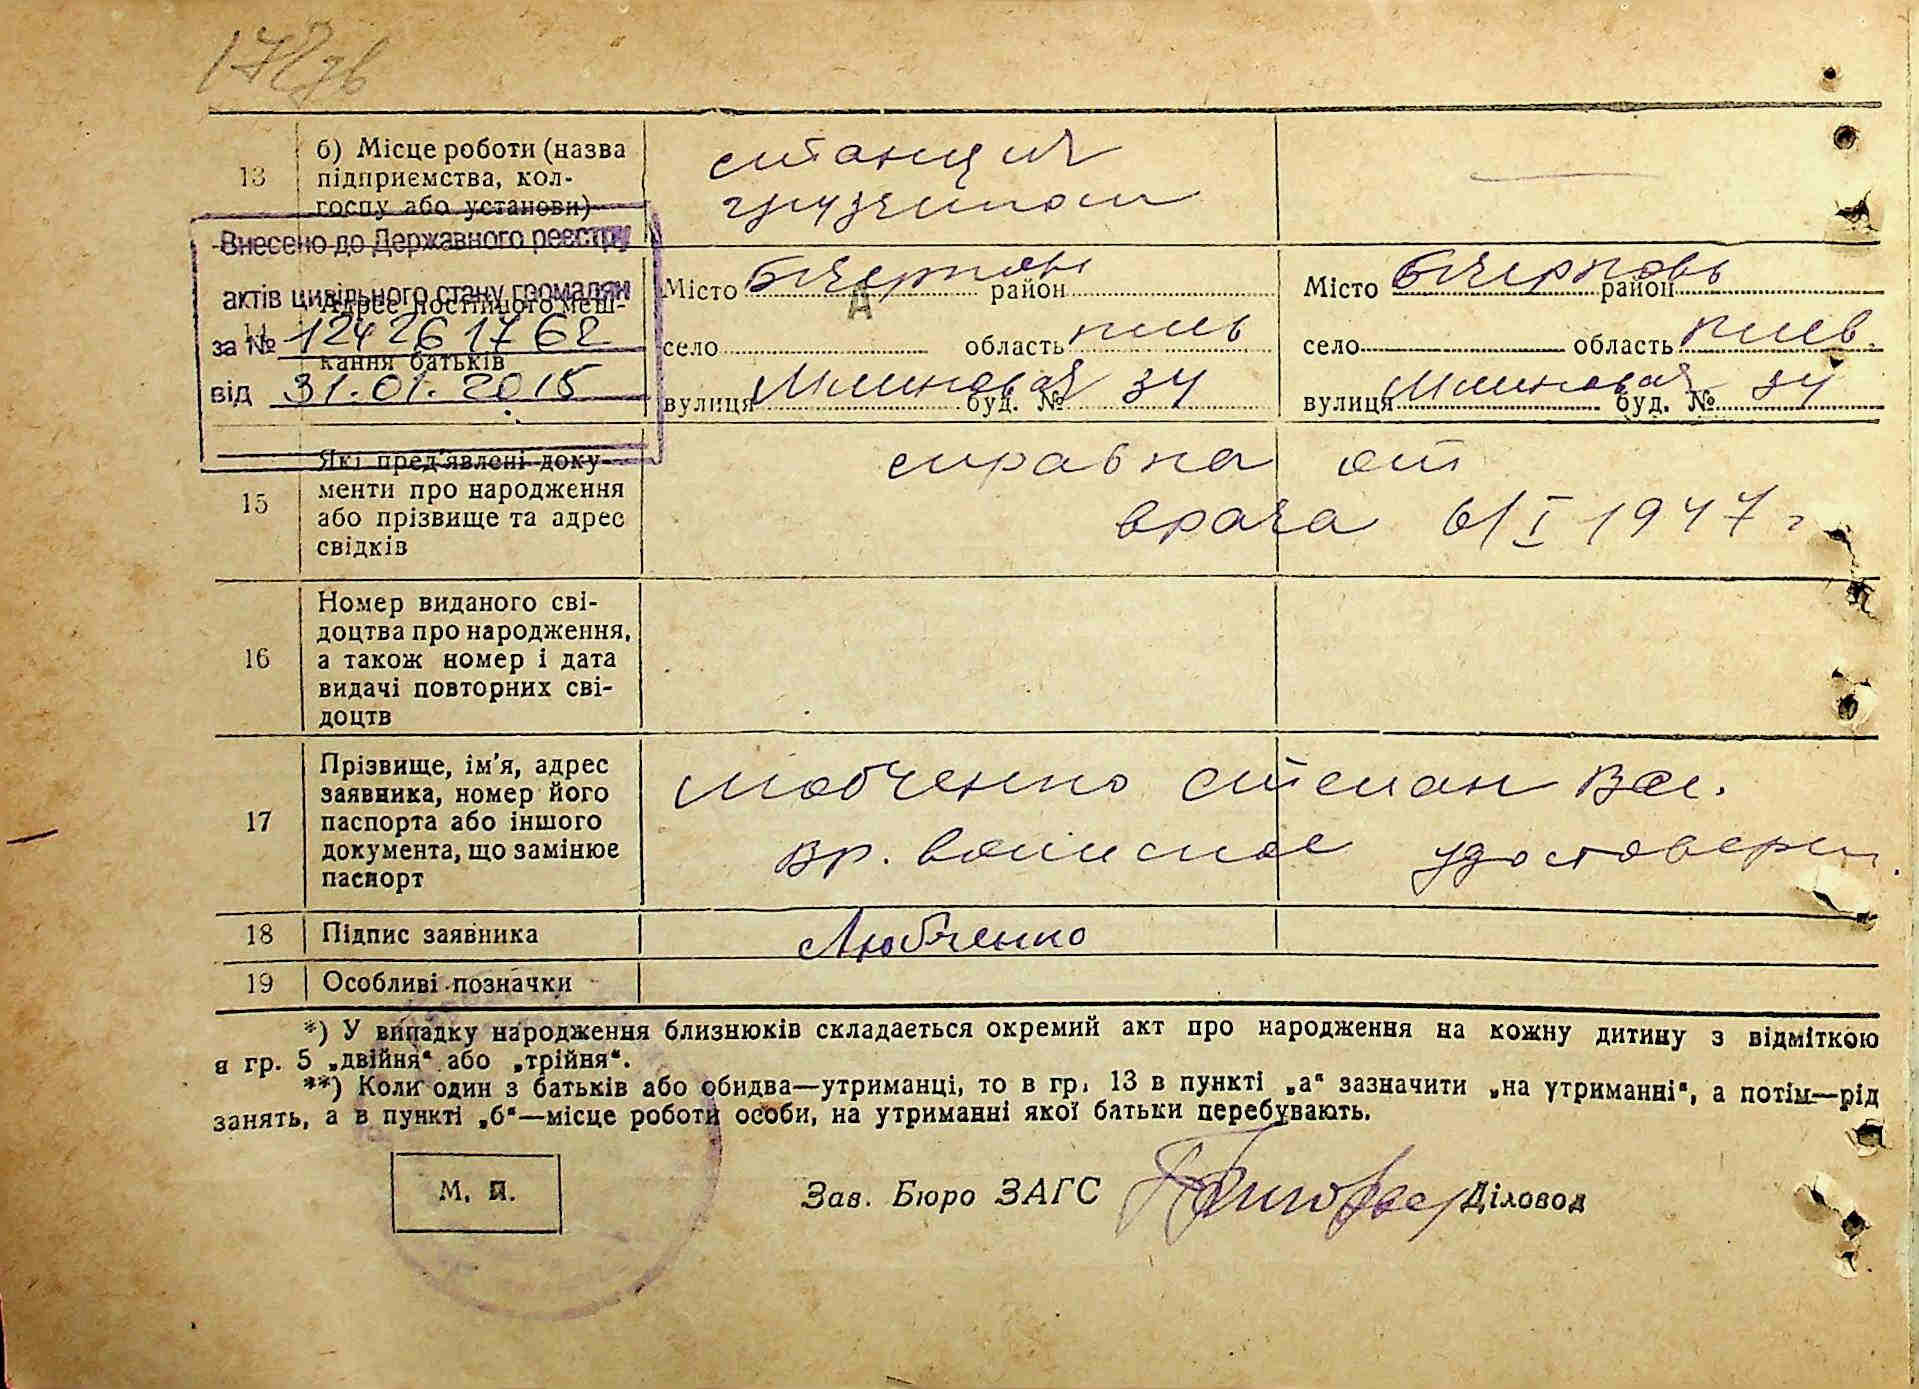 13
б) Місце роботи (назва
підприємства, кол-
госпу або установи)
станция
грузчиком
Внесено до Державного реєстру
актів цивільного стану громадян
за № 12426 1762
від 31.01.2015
14
Адрес постійного меш-
кання батьків
Місто Б Церковь район
село область киев
вулиця буд. № 34
Місто Б Церковь район
село область киев
вулиця буд. № 34
15
Які пред'явлені доку-
менти про народження
або прізвище та адрес
свідків
справка от
врача 6/I 1947 г
16
Номер виданого сві-
доцтва про народження,
а також номер і дата
видачі повторних сві-
доцтв
17
Прізвище, ім'я, адрес
заявника, номер його
паспорта або іншого
документа, що замінює
паспорт
Любченко Степан Вас.
вр. воинское удостовер
18
Підпис заявника
Любченко
19
Особливі позначки
*) У випадку народження близнюків складається окремий акт про народження на кожну дитину з відміткою
в гр. 5 „двійня“ або „трійня“.
**) Коли один з батьків або обидва—утриманці, то в гр. 13 в пункті „а“ зазначити „на утриманні“, а потім—рід
занять, а в пункті „б“—місце роботи особи, на утриманні якої батьки перебувають.
М. П.
Зав. Бюро ЗАГС
Діловод